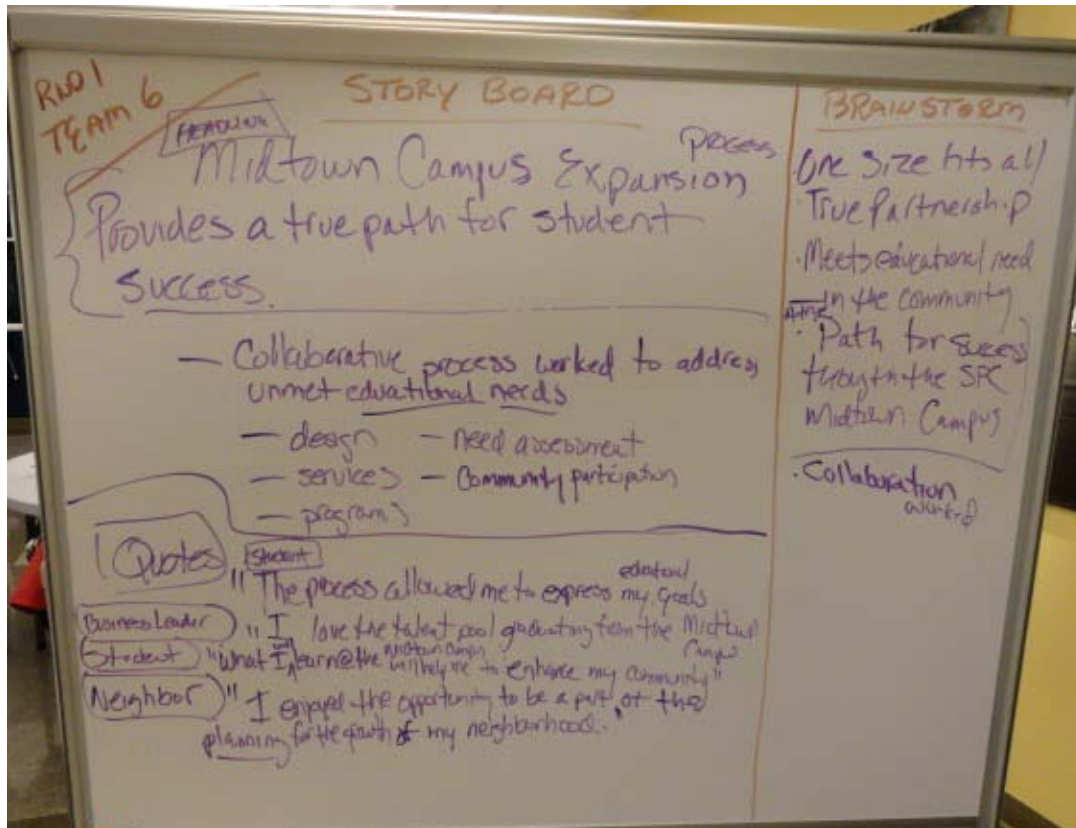 RND 1
TEAM 6
STORY BOARD
HEADLINE
Midtown Campus Expansion process
Provides a true path for student
success.
— Collaborative process worked to address
unmet educational needs
— design — need assessment
— services — Community participation
— programs
Quotes
Student
" The process allowed me to express my educational goals
Business Leader " I love the talent pool graduating from the Midtown
Campus
Student "What I learn @ the Midtown Campus will help me to enhance my community"
Neighbor " I enjoyed the opportunity to be a part of the
planning for the growth of my neighborhood.
BRAINSTORM
· One size fits all
· True Partnership
· Meets educational need
in the community
· Path for success
through the SPC
Midtown Campus
· Collaboration
worked